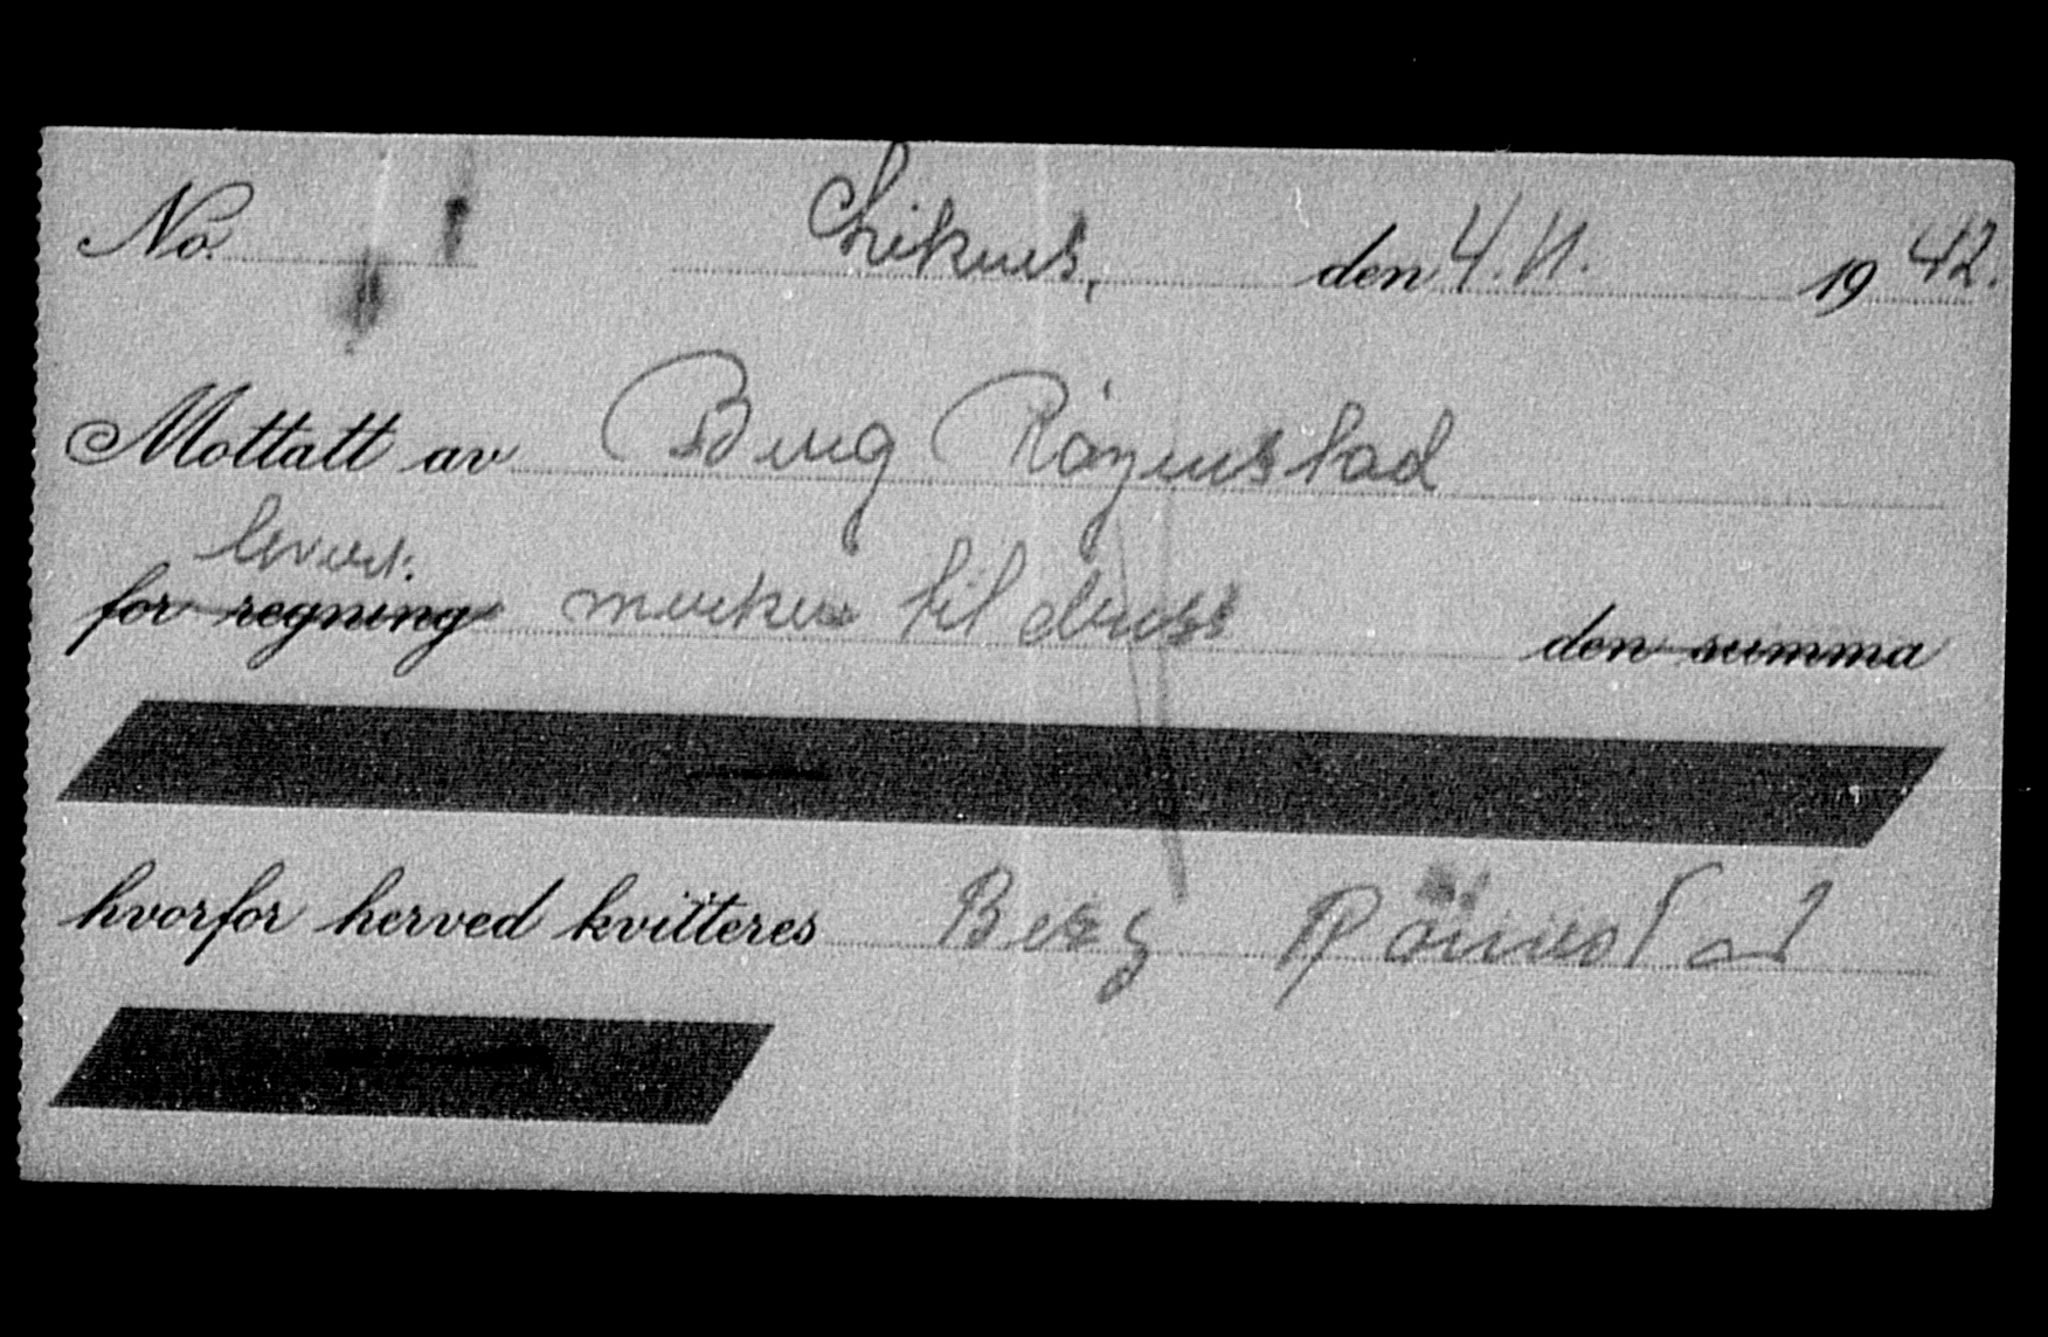 No. Liknes, den 4.11. 1942.
Mottatt av Berg Röynestad
levert.
for regning merker til dress den summa
hvorfor herved kvitteres Berg Röinestad